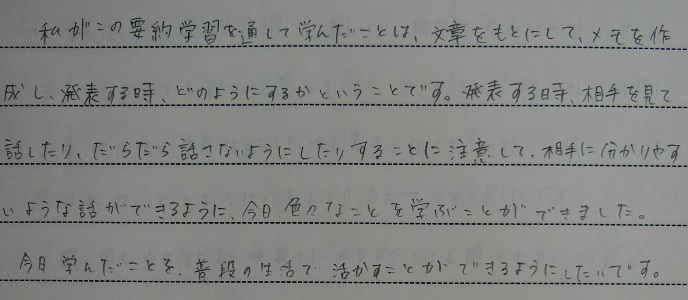 私がこの要約学習を通して学んだことは、文章をもとにして、メモを作
成し、発表する時、どのようにするかということです。発表する時、相手を見て
話したり、だらだら話さないようにしたりすることに注意して、相手に分かりやす
いような話ができるように、今日色々なことを学ぶことができました。
今日学んだことを、普段の生活で活かすことができるようにしたいです。